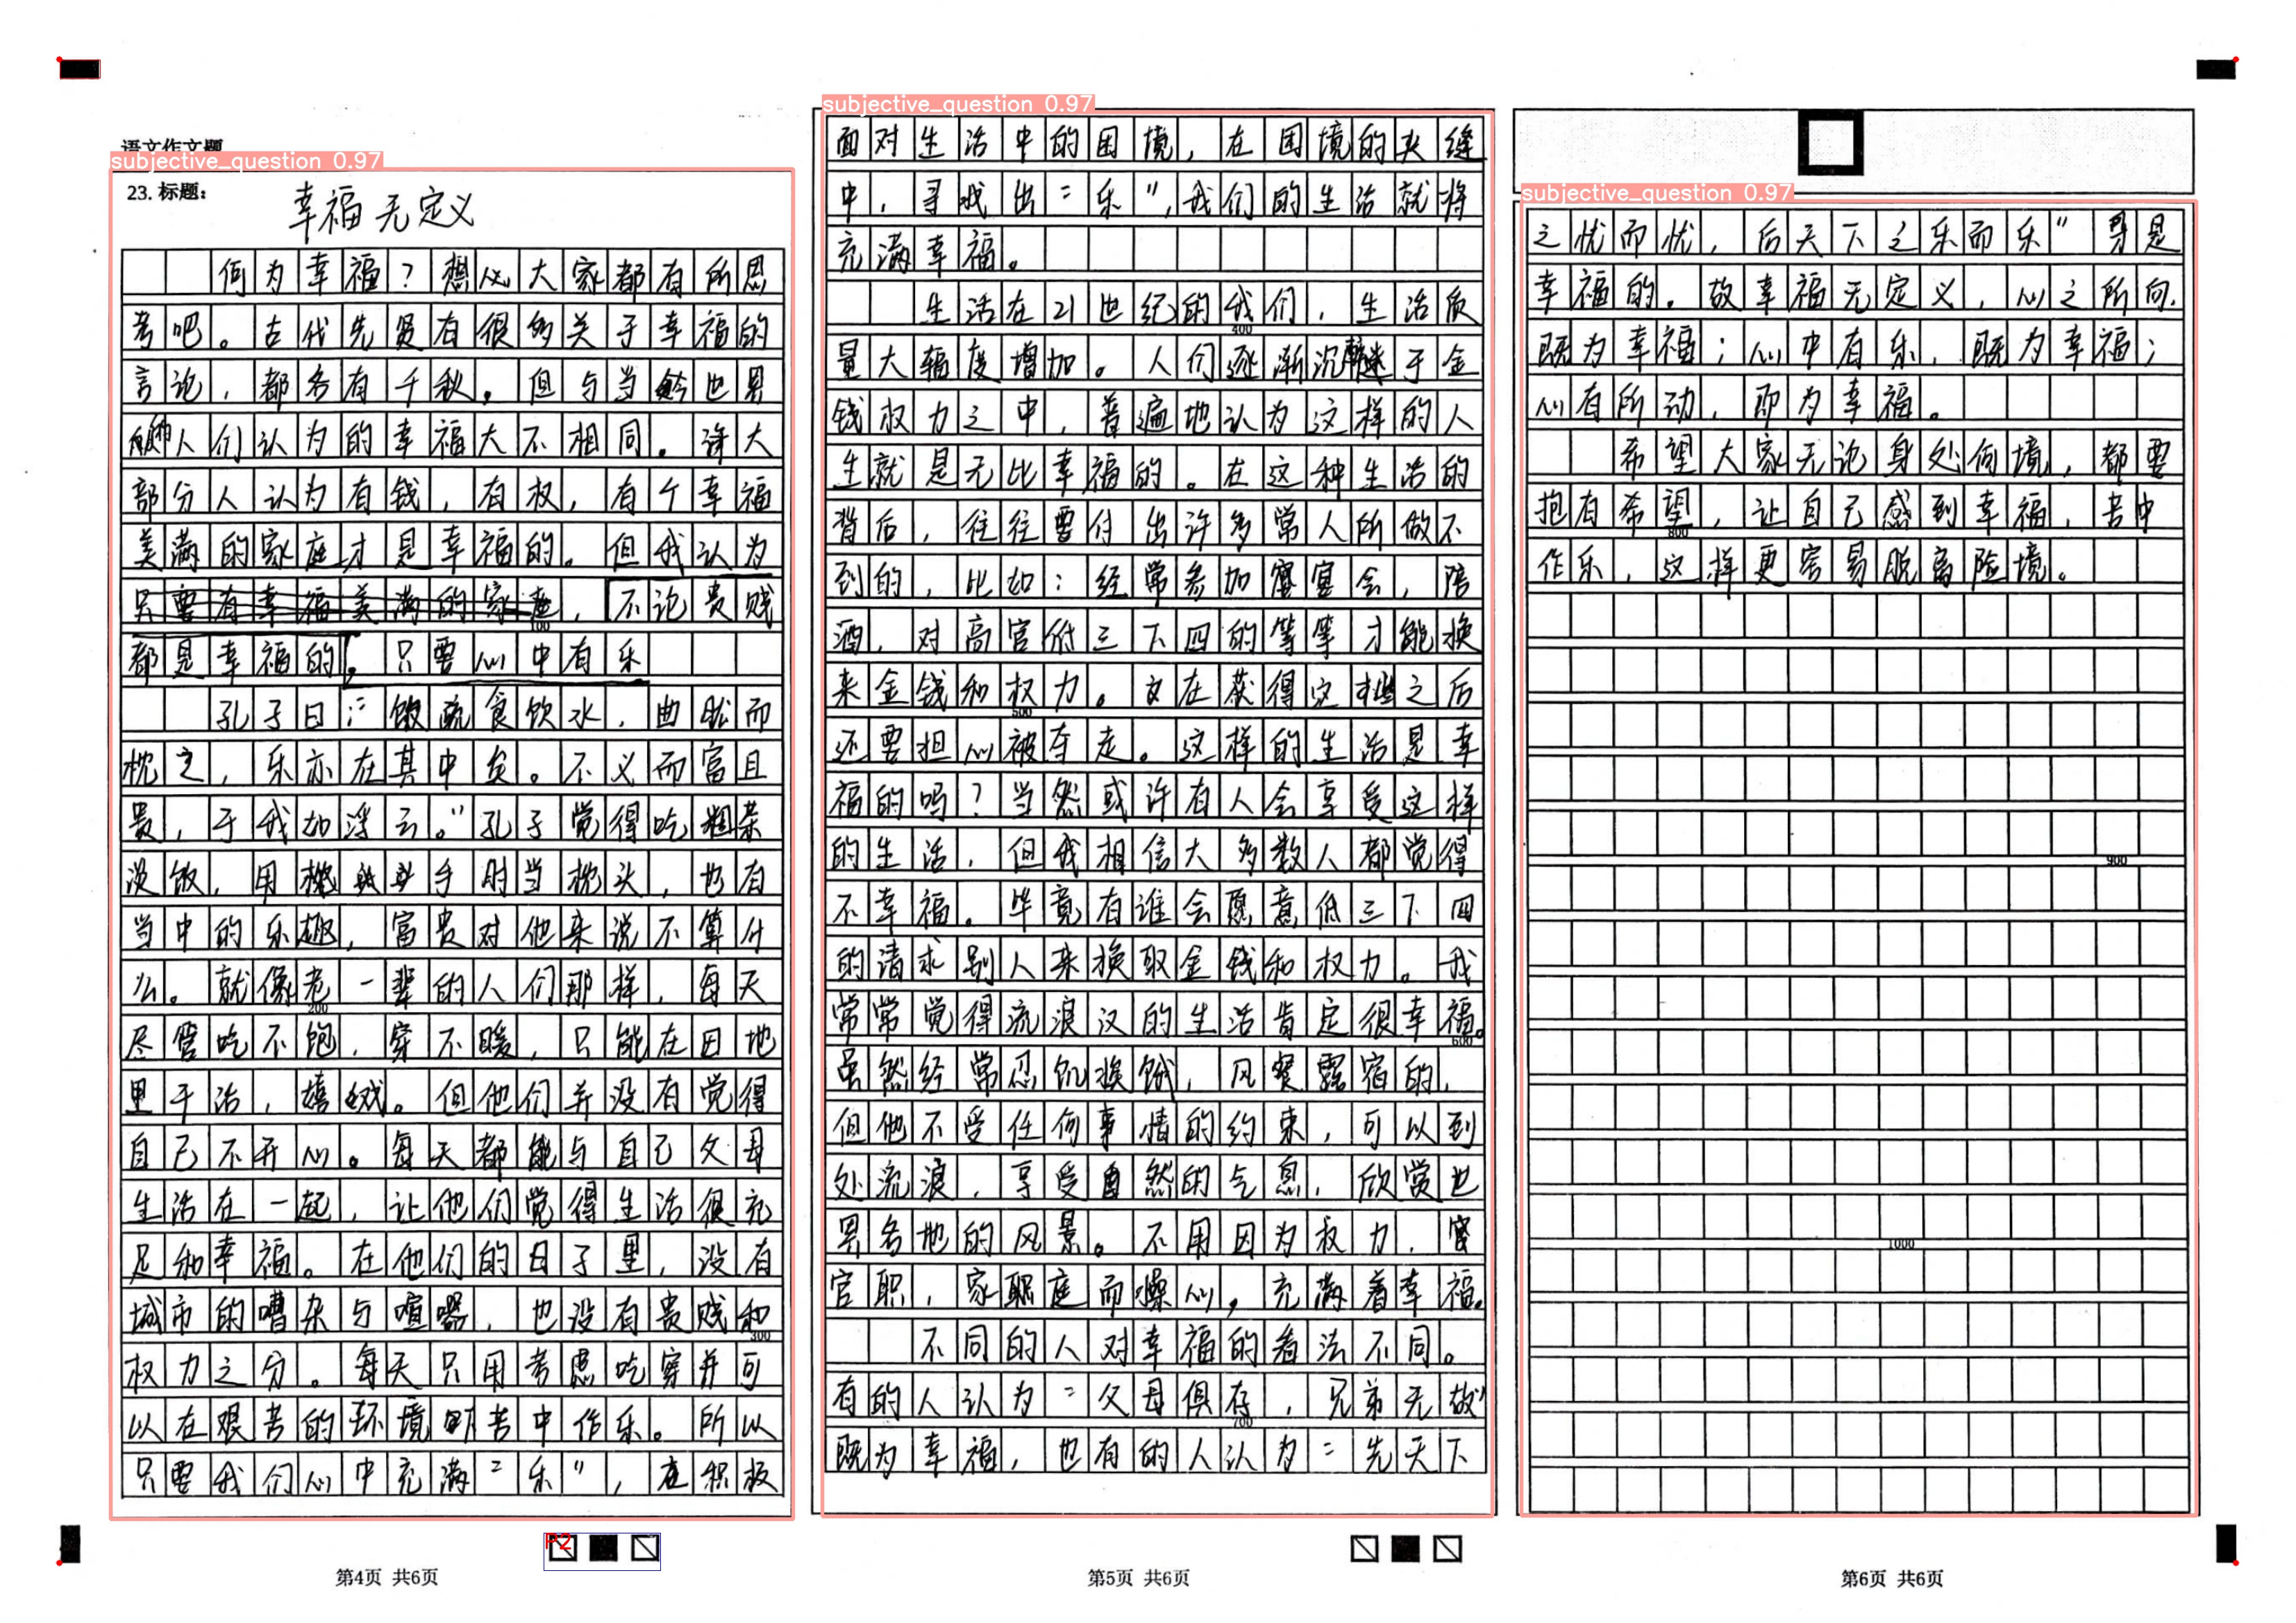 语文作文题
subjective_question 0.97
23. 标题:
幸福无定义
何为幸福？想必大家都有所思
考吧。古代先贤有很多关于幸福的
言论，都各有千秋。但与当今世界
人们认为的幸福大不相同。许大
部分人认为有钱，有权，有个幸福
美满的家庭才是幸福的。但我认为
只要有幸福美满的家庭，不论贵贱
100
都是幸福的。只要心中有乐
孔子曰：“饭疏食饮水，曲肱而
枕之，乐亦在其中矣。不义而富且
贵，于我如浮云。”孔子觉得吃粗茶
淡饭，用手肘当枕头，也有
当中的乐趣，富贵对他来说不算什
么。就像老一辈的人们那样，每天
200
尽管吃不饱，穿不暖，只能在田地
里干活，嬉戏。但他们并没有觉得
自己不开心。每天都能与自己父母
生活在一起，让他们觉得生活很充
足和幸福。在他们的日子里，没有
城市的嘈杂与喧嚣，也没有贵贱和
300
权力之分。每天只用考虑吃穿并可
以在艰苦的环境苦中作乐。所以
只要我们心中充满“乐”，在积极
第4页 共6页
P2
subjective_question 0.97
面对生活中的困境，在困境的夹缝
中，寻找出“乐”，我们的生活就将
充满幸福。
生活在21世纪的我们，生活质
400
量大辐度增加。人们逐渐沉迷于金
钱权力之中，普遍地认为这样的人
生就是无比幸福的。在这种生活的
背后，往往要付出许多常人所做不
到的，比如：经常参加宴会，陪
酒，对高官低三下四的等等才能换
来金钱和权力。又在获得这些之后
500
还要担心被夺走。这样的生活是幸
福的吗？当然或许有人会享受这样
的生活，但我相信大多数人都觉得
不幸福。毕竟有谁会愿意低三下四
的请求别人来换取金钱和权力。我
常常觉得流浪汉的生活肯定很幸福。
600
虽然经常忍饥挨饿，风餐露宿的，
但他不受任何事情的约束，可以到
处流浪，享受自然的气息，欣赏世
界各地的风景。不用因为权力，
官职，家庭而操心，充满着幸福。
不同的人对幸福的看法不同。
有的人认为“父母俱存，兄弟无故”
700
既为幸福，也有的人认为“先天下
第5页 共6页
subjective_question 0.97
之忧而忧，后天下之乐而乐”才是
幸福的。故幸福无定义，心之所向，
既为幸福；心中有乐，既为幸福；
心有所动，即为幸福。
希望大家无论身处何境，都要
抱有希望，让自己感到幸福，苦中
800
作乐，这样更容易脱离险境。
900
1000
第6页 共6页